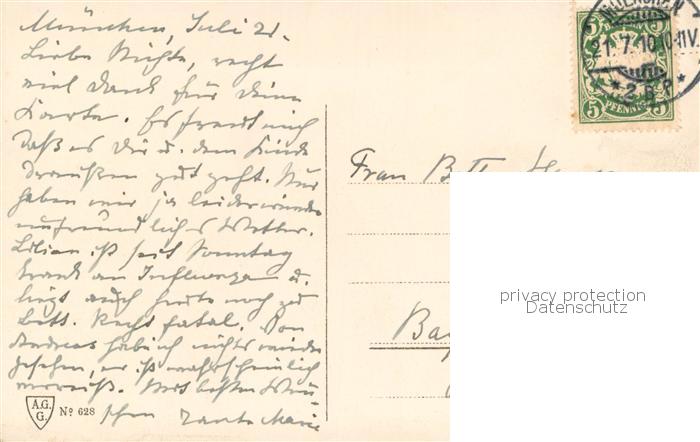 München, Juli 21.
Liebe Nichte, recht
viel Dank für Deine
Karte. Es freut mich
daß es Dir u. dem Kinde
draußen gut geht. Wir
haben wir ja leider wieder
unfreundliches Wetter.
Lilian ist seit Sonntag
krank an Influenza u.
liegt auch heute noch zu
Bett. Recht fatal. Von
Andreas habe ich nichts wieder
gesehen, er ist wahrscheinlich
verreist. Mit besten Wün
schen Tante Marie
A.G.
G.
Nº 628
Frau
MUENCHEN
21.7.10.
BAYERN
5 5
PFENNIG
privacy protection
Datenschutz